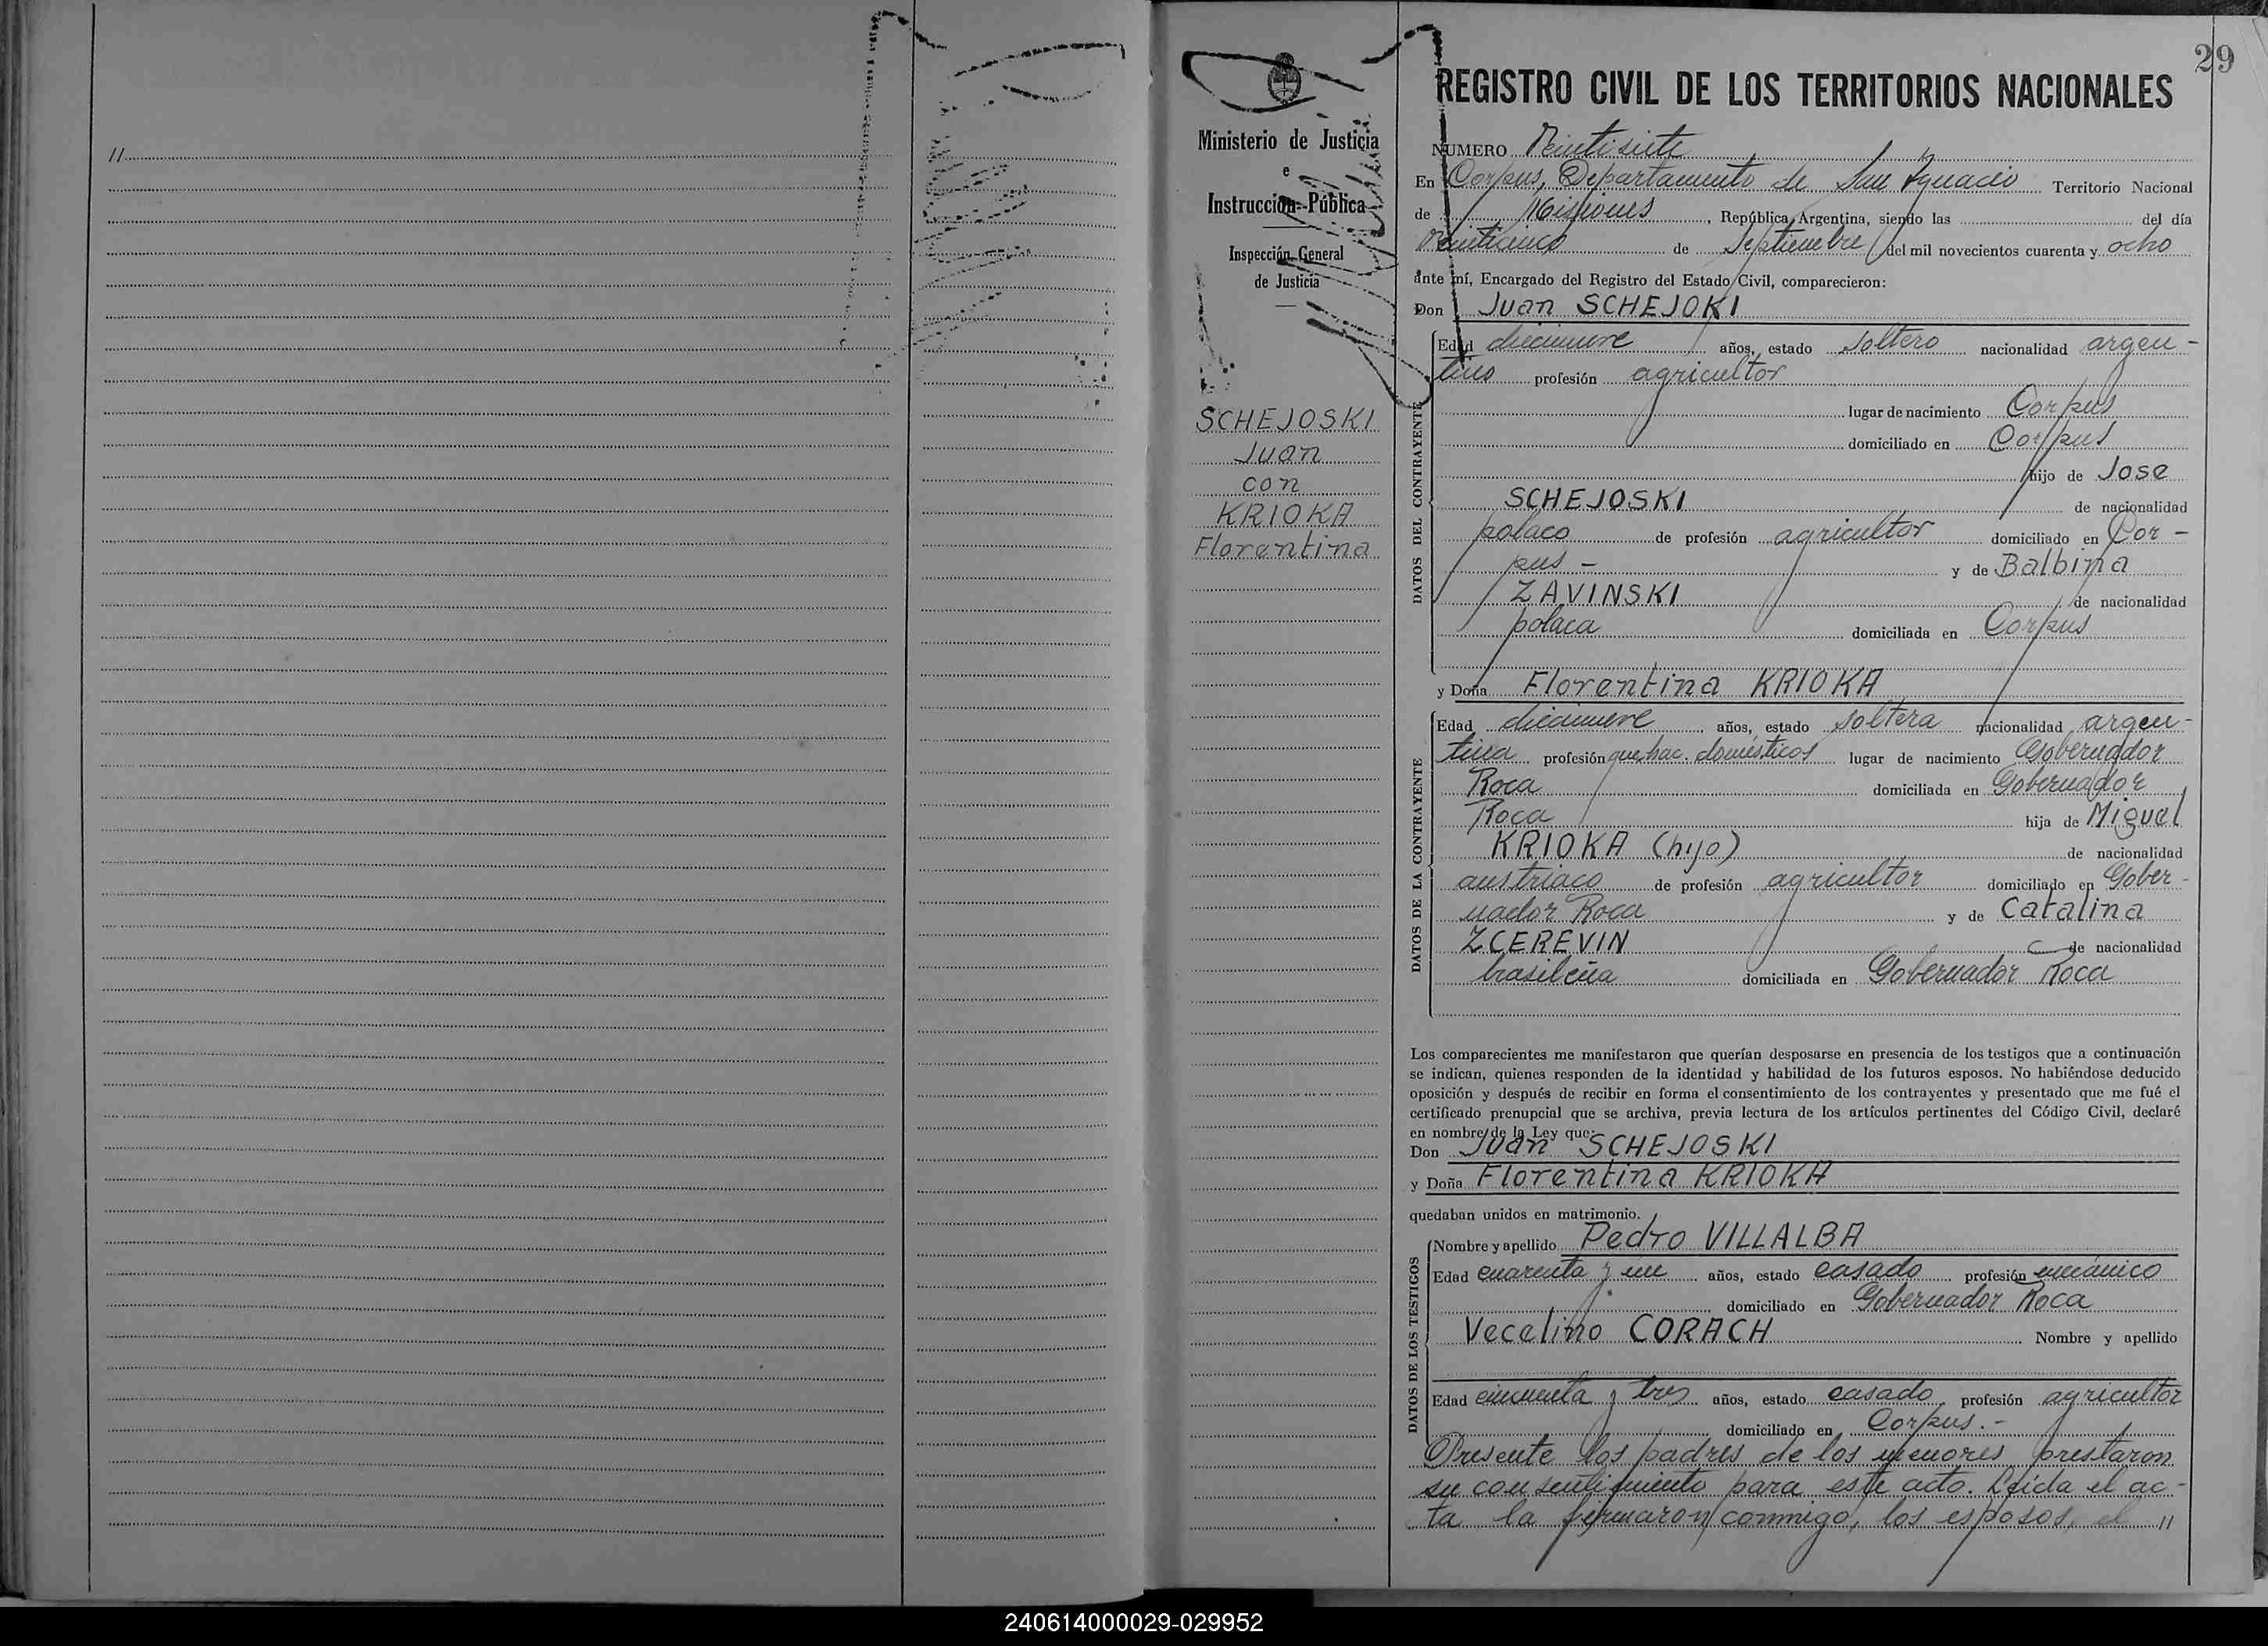 //
29
REGISTRO CIVIL DE LOS TERRITORIOS NACIONALES
Ministerio de Justicia
e
Instrucción Pública
Inspección General
de Justicia
SCHEJOSKI
Juan
con
KRIOKA
Florentina
NUMERO Veintisiete
En Corpus, Departamento de San Ignacio Territorio Nacional
de Misiones, República Argentina, siendo las del día
Veinticinco de Septiembre del mil novecientos cuarenta y ocho
ante mí, Encargado del Registro del Estado Civil, comparecieron:
Don Juan SCHEJOKI
DATOS DEL CONTRAYENTE
Edad diecinueve años, estado soltero nacionalidad argen-
tino profesión agricultor
lugar de nacimiento Corpus
domiciliado en Corpus
hijo de Jose
SCHEJOSKI de nacionalidad
polaco de profesión agricultor domiciliado en Cor-
pus - y de Balbina
ZAVINSKI de nacionalidad
polaca domiciliada en Corpus
y Doña Florentina KRIOKA
DATOS DE LA CONTRAYENTE
Edad diecinueve años, estado soltera nacionalidad argen-
tina profesión que hac. domésticos lugar de nacimiento Gobernador
Roca domiciliada en Gobernador
Roca hija de Miguel
KRIOKA (hijo) de nacionalidad
austriaco de profesión agricultor domiciliado en Gober-
nador Roca y de Catalina
ZCEREVIN de nacionalidad
brasileña domiciliada en Gobernador Roca
Los comparecientes me manifestaron que querían desposarse en presencia de los testigos que a continuación
se indican, quienes responden de la identidad y habilidad de los futuros esposos. No habiéndose deducido
oposición y después de recibir en forma el consentimiento de los contrayentes y presentado que me fué el
certificado prenupcial que se archiva, previa lectura de los artículos pertinentes del Código Civil, declaré
en nombre de la Ley que:
Don Juan SCHEJOSKI
y Doña Florentina KRIOKA
quedaban unidos en matrimonio.
DATOS DE LOS TESTIGOS
Nombre y apellido Pedro VILLALBA
Edad cuarenta y un años, estado casado profesión mecánico
domiciliado en Gobernador Roca
Vecelino CORACH Nombre y apellido
Edad cincuenta y tres años, estado casado profesión agricultor
domiciliado en Corpus.-
Presente los padres de los menores prestaron
su consentimiento para este acto. Leída el ac-
ta la firmaron conmigo, los esposos, el //
240614000029-029952